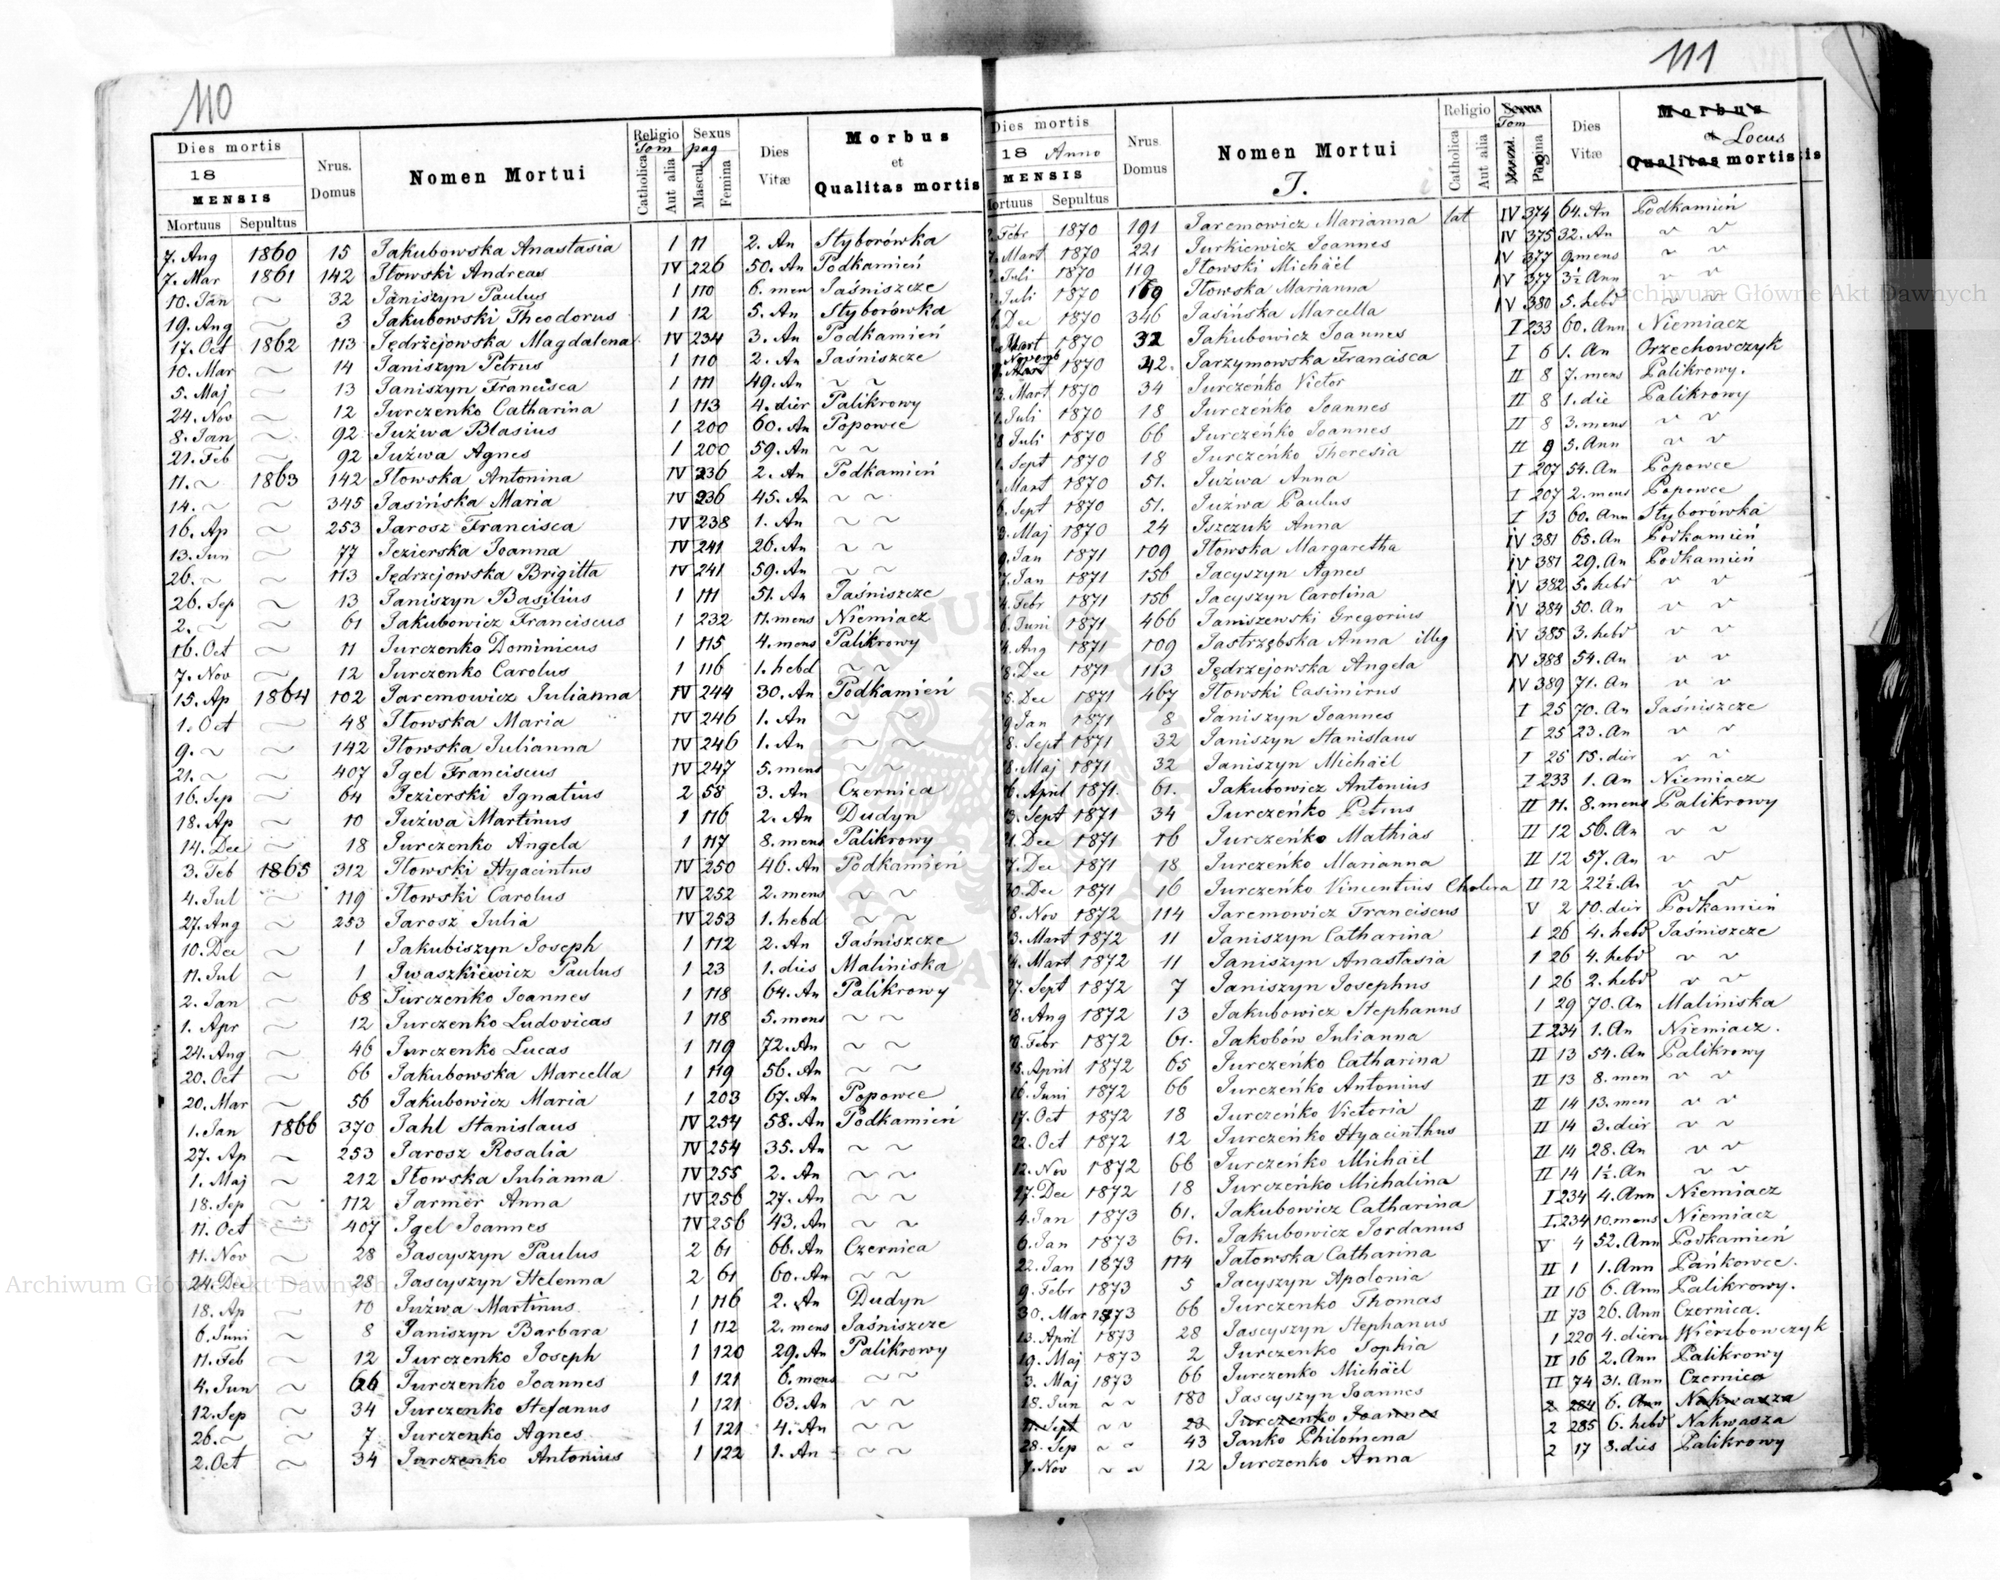 110
Dies mortis
18
MENSIS
Mortuus Sepultus
Nrus. Domus
Nomen Mortui
Religio
Tom
Catholica
Aut alia
Sexus
pag
Mascul.
Femina
Dies Vitæ
Morbus
et
Qualitas mortis
7. Aug 1860 15 Jakubowska Anastasia I 11 2. An Styborówka
7. Mar 1861 142 Iłowski Andreas IV 226 50. An Podkamień
10. Jan ~ 32 Janiszyn Paulus I 110 6. men Jaśniszcze
19. Aug ~ 3 Jakubowski Theodorus I 12 5. An Styborówka
17. Oct 1862 113 Jędrzejowska Magdalena IV 234 3. An Podkamień
10. Mar ~ 14 Janiszyn Petrus I 110 2. An Jaśniszcze
5. Maj ~ 13 Janiszyn Francisca I 111 49. An ~ ~
24. Nov ~ 12 Jurczenko Catharina I 113 4. dier Palikrowy
8. Jan ~ 92 Juźwa Blasius I 200 60. An Popowce
21. Feb ~ 92 Juźwa Agnes I 200 59. An ~ ~
11. ~ 1863 142 Iłowska Antonina IV 236 2. An Podkamień
14. ~ ~ 345 Jasińska Maria IV 236 45. An ~ ~
16. Ap ~ 253 Jarosz Francisca IV 238 1. An ~ ~
13. Jun ~ 77 Jezierska Joanna IV 241 26. An ~ ~
26. ~ ~ 113 Jędrzejowska Brigitta IV 241 59. An ~ ~
26. Sep ~ 13 Janiszyn Basilius I 111 51. An Jaśniszcze
2. ~ ~ 61 Jakubowicz Franciscus I 232 11. mens Niemiacz
16. Oct ~ 11 Jurczenko Dominicus I 115 4. mens Palikrowy
7. Nov ~ 12 Jurczenko Carolus I 116 1. hebd ~ ~
15. Ap 1864 102 Jaremowicz Julianna IV 244 30. An Podkamień
1. Oct ~ 48 Iłowska Maria IV 246 1. An ~ ~
9. ~ ~ 142 Iłowska Julianna IV 246 1. An ~ ~
21. ~ ~ 407 Igel Franciscus IV 247 5. mens ~ ~
16. Sep ~ 64 Jezierski Ignatius 2 58 3. An Czernica
18. Ap ~ 10 Juźwa Martinus I 116 2. An Dudyn
14. Dec ~ 18 Jurczenko Angela I 117 8. mens Palikrowy
3. Feb 1865 312 Iłowski Hyacintus IV 250 46. An Podkamień
4. Jul ~ 119 Iłowski Carolus IV 252 2. mens ~ ~
27. Aug ~ 253 Jarosz Julia IV 253 1. hebd ~ ~
10. Dec ~ 1 Jakubiszyn Joseph I 112 2. An Jaśniszcze
11. Jul ~ 1 Iwaszkiewicz Paulus I 23 1. dies Maliniska
2. Jan ~ 68 Jurczenko Joannes I 118 64. An Palikrowy
1. Apr ~ 12 Jurczenko Ludovicas I 118 5. mens ~ ~
24. Aug ~ 46 Jurczenko Lucas I 119 72. An ~ ~
20. Oct ~ 66 Jakubowska Marcella I 119 56. An ~ ~
20. Mar ~ 56 Jakubowicz Maria I 203 67. An Popowce
1. Jan 1866 370 Jahl Stanislaus IV 254 58. An Podkamień
27. Ap ~ 253 Jarosz Rosalia IV 254 35. An ~ ~
1. Maj ~ 212 Iłowska Julianna IV 255 2. An ~ ~
18. Sep ~ 112 Jarmer Anna IV 256 27. An ~ ~
11. Oct ~ 407 Igel Joannes IV 256 43. An ~ ~
11. Nov ~ 28 Jascyszyn Paulus 2 61 66. An Czernica
24. Dec ~ 28 Jascyszyn Helenna 2 61 60. An ~ ~
18. Ap ~ 10 Juźwa Martinus I 116 2. An Dudyn
6. Juni ~ 8 Janiszyn Barbara I 112 2. mens Jaśniszcze
11. Feb ~ 12 Jurczenko Joseph I 120 29. An Palikrowy
4. Jun ~ 66 Jurczenko Joannes I 121 6. mens ~ ~
12. Sep ~ 34 Jurczenko Stefanus I 121 63. An ~ ~
26. ~ ~ 7 Jurczenko Agnes I 121 4. An ~ ~
2. Oct ~ 34 Jurczenko Antonius I 122 1. An ~ ~
111
Dies mortis
18 Anno
MENSIS
Mortuus Sepultus
Nrus. Domus
Nomen Mortui
J.
Religio
Catholica
Aut alia
Sexus
Tom
Pagina
Dies Vitæ
Morbus
et Locus
Qualitas mortis
Febr 1870 191 Jaremowicz Marianna lat IV 374 64. An Podkamień
Mart 1870 221 Jurkiewicz Joannes IV 375 32. An v v
Juli 1870 119 Iłowski Michäel IV 377 9. mens v v
Juli 1870 119 Iłowska Marianna IV 377 3½ Ann v v
Dec 1870 346 Jasińska Marcella IV 380 5. hebd v v
Mart 1870 32 Jakubowicz Joannes I 233 60. Ann Niemiacz
Novemb 1870 42. Jarzymowska Francisca I 6 1. An Orzechowczyk
Mart 1870 34 Jurczeńko Victor II 8 7. mens Palikrowy.
Juli 1870 18 Jurczeńko Joannes II 8 1. die Palikrowy
Juli 1870 66 Jurczeńko Joannes II 8 3. mens v v
Sept 1870 18 Jurczeńko Theresia II 9 5. Ann v v
Mart 1870 51. Juźwa Anna I 207 54. An Popowce
Sept 1870 51. Juźwa Paulus I 207 2. mens Popowce
Maj 1870 24 Iszczuk Anna I 13 60. Ann Styborówka
Jan 1871 109 Iłowska Margaretha IV 381 65. An Podkamień
Jan 1871 156 Jacyszyn Agnes IV 381 29. An Podkamień
Febr 1871 156 Jacyszyn Carolina IV 382 5. hebd v v
Juni 1871 466 Janiszewski Gregorius IV 384 50. An v v
Aug 1871 109 Jastrzębska Anna illeg IV 385 3. hebd v v
Dec 1871 113 Jędrzejowska Angela IV 388 54. An v v
Dec 1871 467 Iłowski Casimirus IV 389 71. An v v
Jan 1871 8 Janiszyn Joannes I 25 70. An Jaśniszcze
Sept 1871 32 Janiszyn Stanislaus I 25 23. An v v
Maj 1871 32 Janiszyn Michäel I 25 15. dier v v
April 1871. 61. Jakubowicz Antonius I 233 1. An Niemiacz
Sept 1871 34 Jurczeńko Petrus II 11. 8. mens Palikrowy
Dec 1871 16 Jurczeńko Mathias II 12 56. An v v
Dec 1871 18 Jurczeńko Marianna II 12 57. An v v
30. Dec 1871 16 Jurczeńko Vincentius Cholera II 12 22½. An v v
Nov 1872 114 Jaremowicz Franciscus V 2 10. dier Podkamień
Mart 1872 11 Janiszyn Catharina I 26 4. hebd Jaśniszcze
Mart 1872 11 Janiszyn Anastasia I 26 4. hebd v v
Sept 1872 7 Janiszyn Josephus I 26 2. hebd v v
Aug 1872 13 Jakubowicz Stephanus I 29 70. An Maliniska
Febr 1872 61. Jakobów Julianna I 234 1. An Niemiacz.
15. April 1872 65 Jurczeńko Catharina II 13 54. An Palikrowy
16. Juni 1872 66 Jurczeńko Antonius II 13 8. men v v
17. Oct 1872 18 Jurczeńko Victoria II 14 13. men v v
22. Oct 1872 12 Jurczeńko Hyacinthus II 14 3. dier v v
12. Nov 1872 66 Jurczeńko Michäel II 14 28. An v v
17. Dec 1872 18 Jurczeńko Michalina II 14 1½. An v v
4. Jan 1873 61. Jakubowicz Catharina I 234 4. Ann Niemiacz
6. Jan 1873 61. Jakubowicz Jordanus I. 234 10. mens Niemiacz
22. Jan 1873 114 Jatowska Catharina V 4 52. Ann Podkamień
9. Febr 1873 5 Jacyszyn Apolonia II 1 1. Ann Pańkowce.
30. Mar 1873 66 Jurczenko Thomas II 16 6. Ann Palikrowy.
13. April 1873 28 Jascyszyn Stephanus II 73 26. Ann Czernica.
19. Maj 1873 2 Jurczenko Sophia I 220 4. dieru Wierzbowczyk
3. Maj 1873 66 Jurczenko Michäel II 16 2. Ann Palikrowy
18. Jun ~ ~ 180 Jascyszyn Joannes II 74 31. Ann Czernica
11. Sept ~ ~ 23 Jurczenko Joannes 2 284 6. Ann Nakwasza
28. Sep ~ ~ 43 Janko Philomena 2 285 6. hebd Nakwasza
7. Nov ~ ~ 12 Jurczenko Anna 2 17 8. dies Palikrowy
Archiwum Główne Akt Dawnych
Archiwum Główne Akt Dawnych